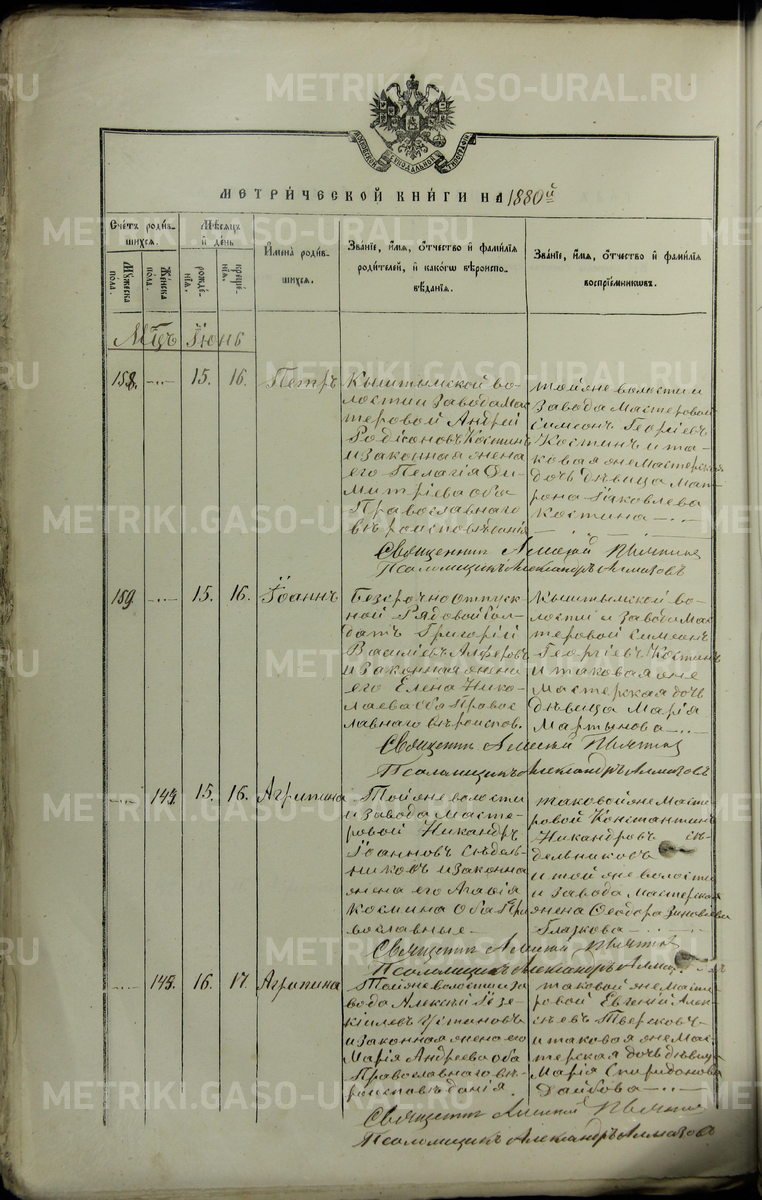 METRIKI.GASO-URAL.RU
МОСКОВСКОЙ СѴНОДАЛЬНОЙ ТИПОГРАФІИ
МЕТРИ́ЧЕСКОЙ КНИ́ГИ НА 1880й
Сче́тъ роди́вшихсѧ.
Му́жеска пола.
Же́нска пола.
Мѣ́сѧцъ и҆ де́нь
рожде́нїѧ.
креще́нїѧ.
И҆мена̀ роди́вшихсѧ.
Зва́нїе, и҆́мѧ, ѻ҆́тчество и҆ фами́лїѧ
роди́телей, и҆ како́гѡ вѣроиспо-
вѣ́данїѧ.
Зва́нїе, и҆́мѧ, ѻ҆́тчество и҆ фами́лїѧ
воспрїе́мникѡвъ.
Мцъ Іюнь
158. -..- 15. 16. Петръ
Кыштымской во-
лости и Завода Мас
теровой Андрей
Родіоновъ Костинъ
и законная жена
его Пелагія Ди-
митріева оба
Православнаго
вѣроисповѣданія
той же волости и
Завода Мастеровой
Симеонъ Георгіевъ
Костинъ и та-
ковая же Мастерская
дочь дѣвица Мат-
рона Іаковлева
Костина -..-
Священникъ Алексій
Псаломщикъ Александръ Алмазовъ
159. -..- 15. 16. Іоаннъ
Безсрочно отпуск
ной Рядовой Сол-
датъ Григорій
Василіевъ Алферовъ
и законная жена
его Елена Нико-
лаева оба Правос
лавнаго вѣроиспов.
Кыштымской во-
лости и Завода Мас
теровой Симеонъ
Георгіевъ Костинъ
и таковая же
Мастерская дочь
дѣвица Марія
Мартынова -..-
Священникъ Алексій
Псаломщикъ Александръ Алмазовъ
-..- 15. 16. Агрипина
Той же волости
и Завода Масте-
ровой Никандръ
Іоанновъ Сѣдель-
никовъ и законна
жена его Агафія
Космина оба Пра
вославные -
таковой же Масте
ровой Константинъ
Никандровъ Сѣ-
дельниковъ
и той же волости
и завода Мастерская
жена Ѳеодора Зиновіева
Глазкова -
Священникъ Алексій
Псаломщикъ Александръ
-..- 145. 16. 17. Агрипина
Той же волости и За
вода Алексій Іезе-
кіилевъ Устиновъ
и законная жена его
Марія Андреева оба
Православнаго вѣ-
роисповѣданія.
таковой же Масте
ровой Евгеній Алек-
сѣевъ Тверсковъ
и таковая же Мас-
терская дочь дѣвица
Марія Спиридонова
Даибова -..-
Священникъ Алексій
Псаломщикъ Александръ Алмазовъ